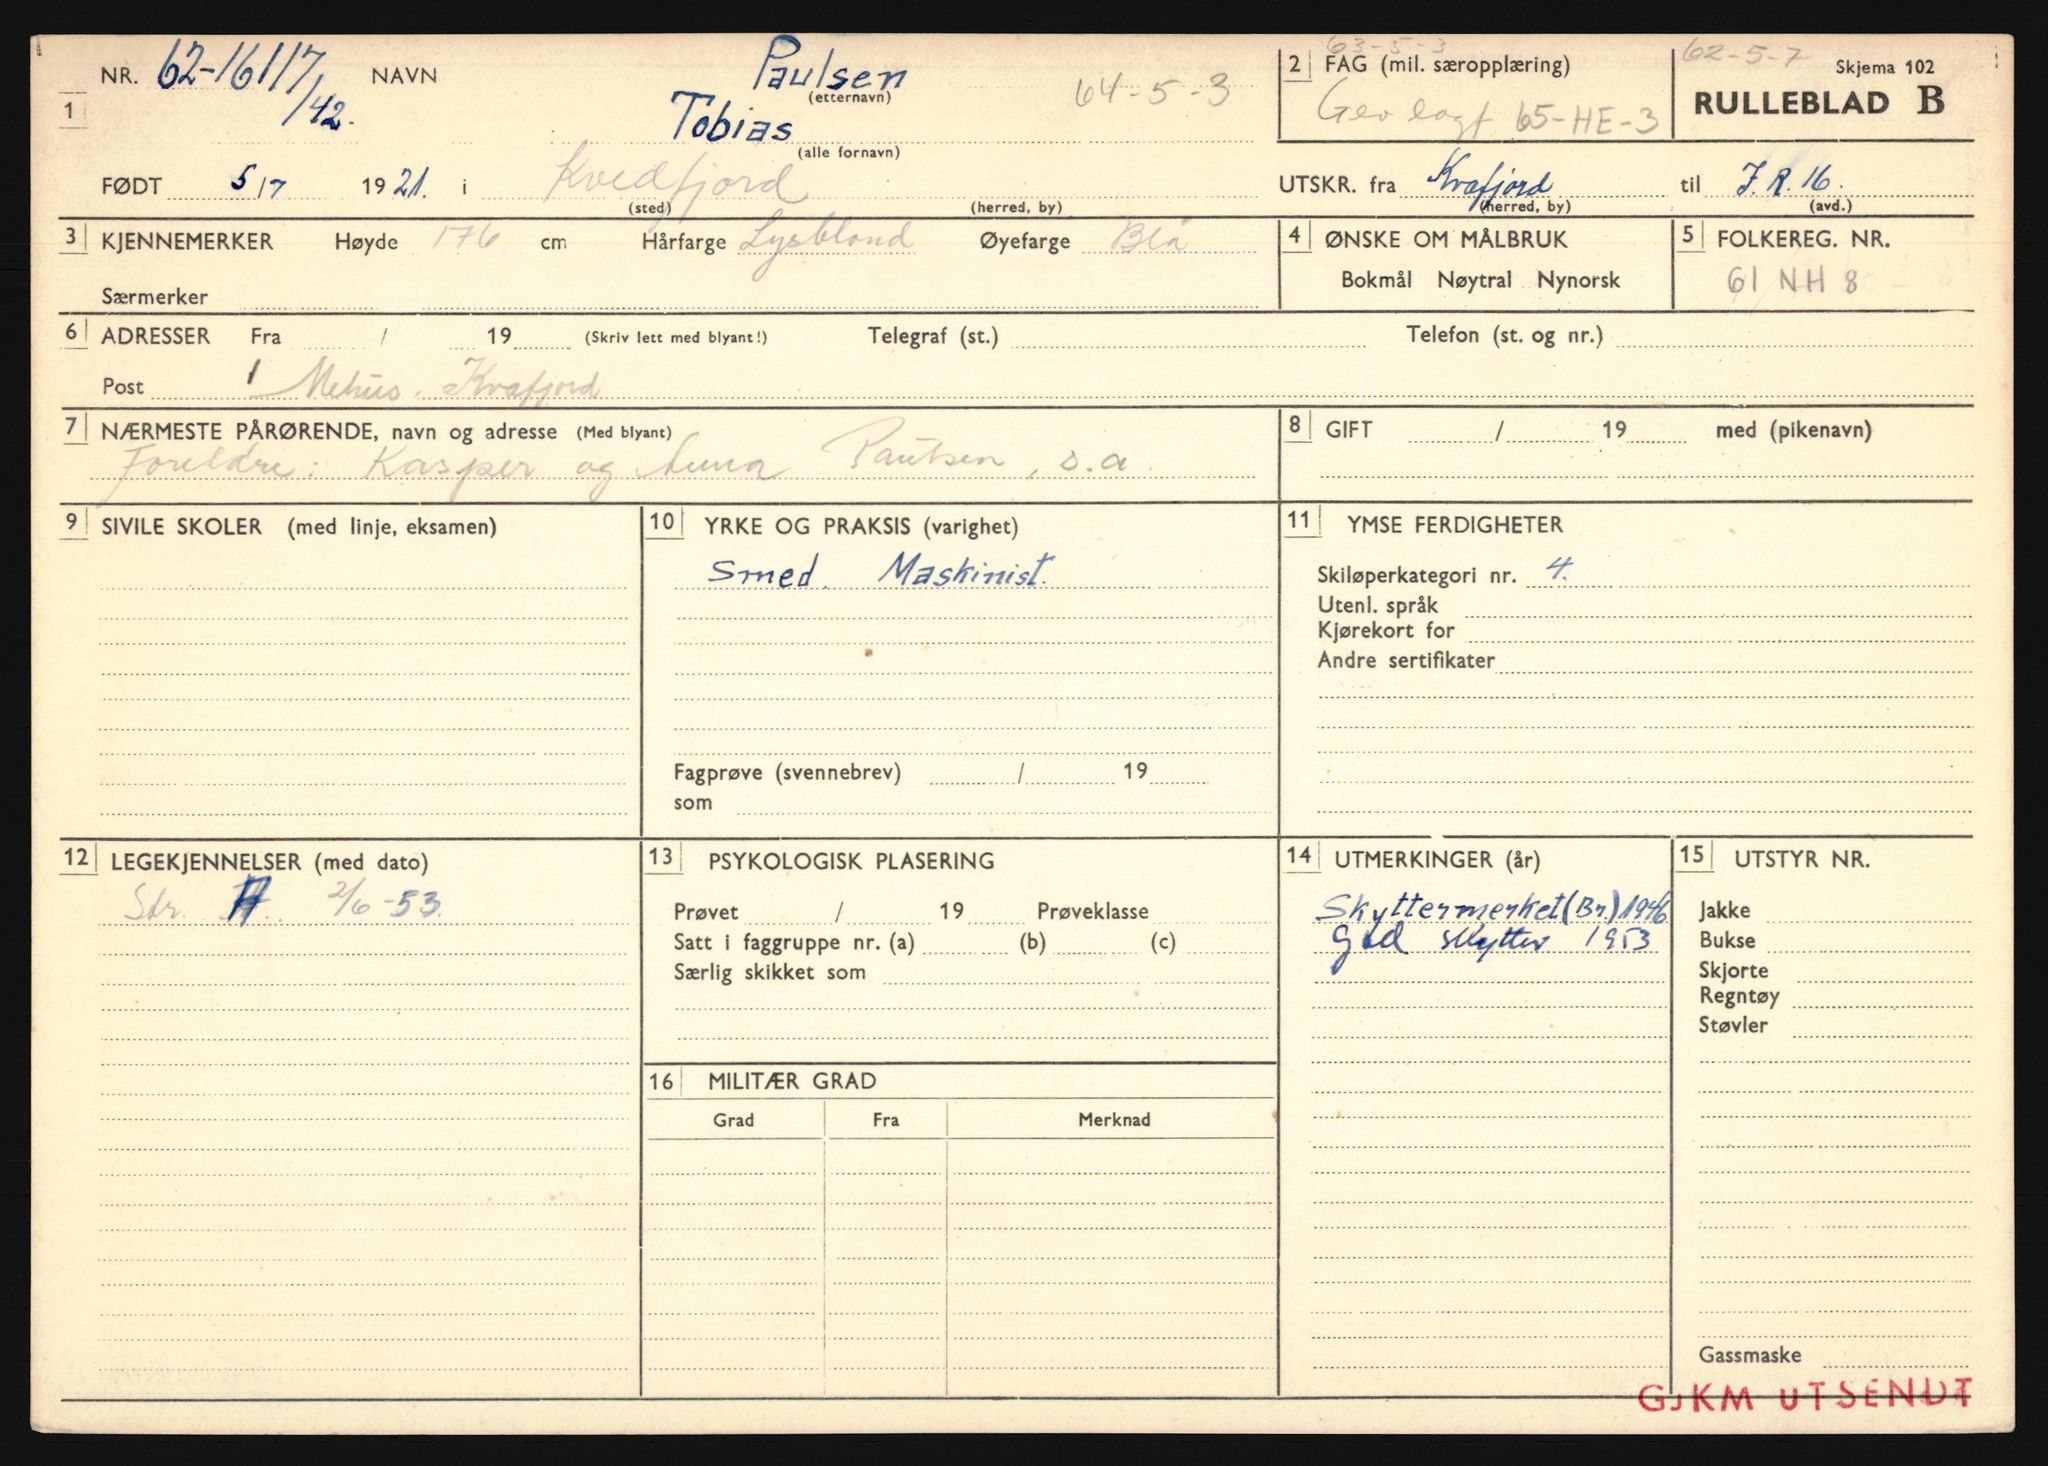 NR. 62-16117/42. NAVN Paulsen 64-5-3
(etternavn)
1 Tobias
(alle fornavn)
FØDT 5/7 1921. i Kvedfjord
(sted) (herred, by)
63-5-3
2 FAG (mil. særopplæring)
65-HE-3
62-5-7 Skjema 102
RULLEBLAD B
UTSKR. fra Kvæfjord til J.R. 16.
(herred, by) (avd.)
3 KJENNEMERKER Høyde 176 cm Hårfarge Lysblond Øyefarge Blå
Særmerker
4 ØNSKE OM MÅLBRUK
Bokmål Nøytral Nynorsk
5 FOLKEREG. NR.
61 NH 8
6 ADRESSER Fra / 19 (Skriv lett med blyant!) Telegraf (st.) Telefon (st. og nr.)
Post Mehus. Kvæfjord
7 NÆRMESTE PÅRØRENDE, navn og adresse (Med blyant)
Foreldre: Kasper og Anna Paulsen, s.a.
8 GIFT / 19 med (pikenavn)
9 SIVILE SKOLER (med linje, eksamen)
10 YRKE OG PRAKSIS (varighet)
Smed. Maskinist.
Fagprøve (svennebrev) / 19
som
11 YMSE FERDIGHETER
Skiløperkategori nr. 4.
Utenl. språk
Kjørekort for
Andre sertifikater
12 LEGEKJENNELSER (med dato)
Str. 2/6-53.
13 PSYKOLOGISK PLASERING
Prøvet / 19 Prøveklasse
Satt i faggruppe nr. (a) (b) (c)
Særlig skikket som
14 UTMERKINGER (år)
Skyttermerket (Br.) 1946
god skytter 1953
15 UTSTYR NR.
Jakke
Bukse
Skjorte
Regntøy
Støvler
Gassmaske
16 MILITÆR GRAD
Grad Fra Merknad
GJKM UTSENDT